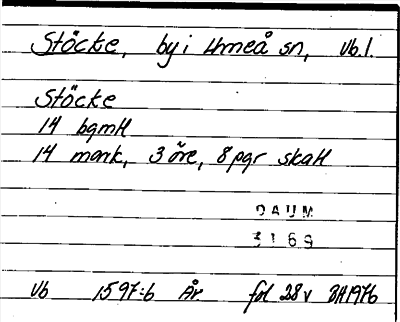 Stöcke, by i Umeå sn, Vb.l.
Stöcke
14 bgmtl
14 mark, 3 öre, 8 pgr skatt
DAUM
3169
Vb 1597:6 År fol 28v BH1976